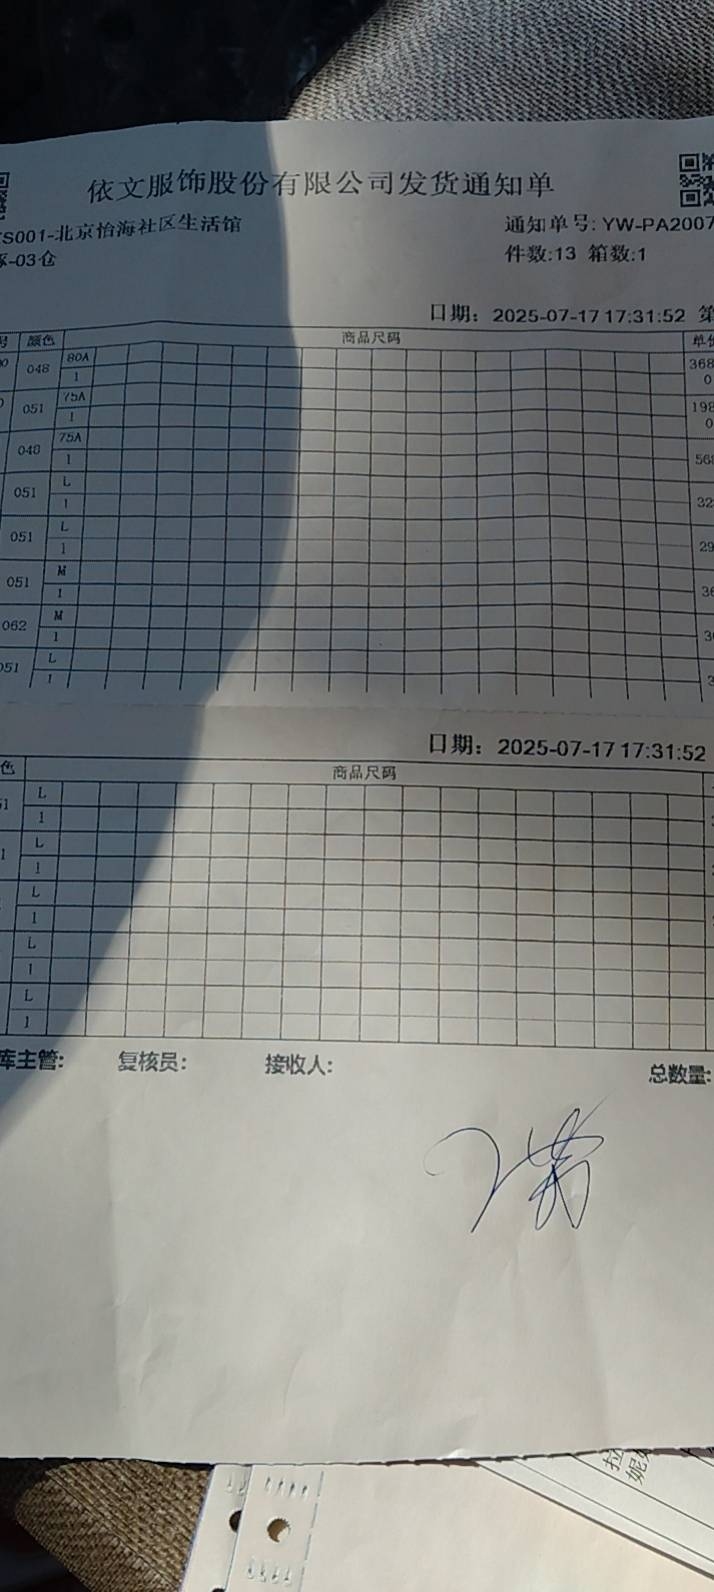 依文服饰股份有限公司发货通知单
S001-北京怡海社区生活馆
通知单号: YW-PA2007
-03仓
件数:13 箱数:1
日期: 2025-07-17 17:31:52 第
号 颜色 商品尺码 单价
048 80A 368
1 0
051 75A 198
1 0
040 75A
1 568
051 L
1 32
051 L
1 29
051 M
1 36
062 M
1 3
051 L
1 3
日期: 2025-07-17 17:31:52
色 商品尺码
51 L
1
1 L
1
L
1
L
1
L
1
库主管: 复核员: 接收人: 总数量: